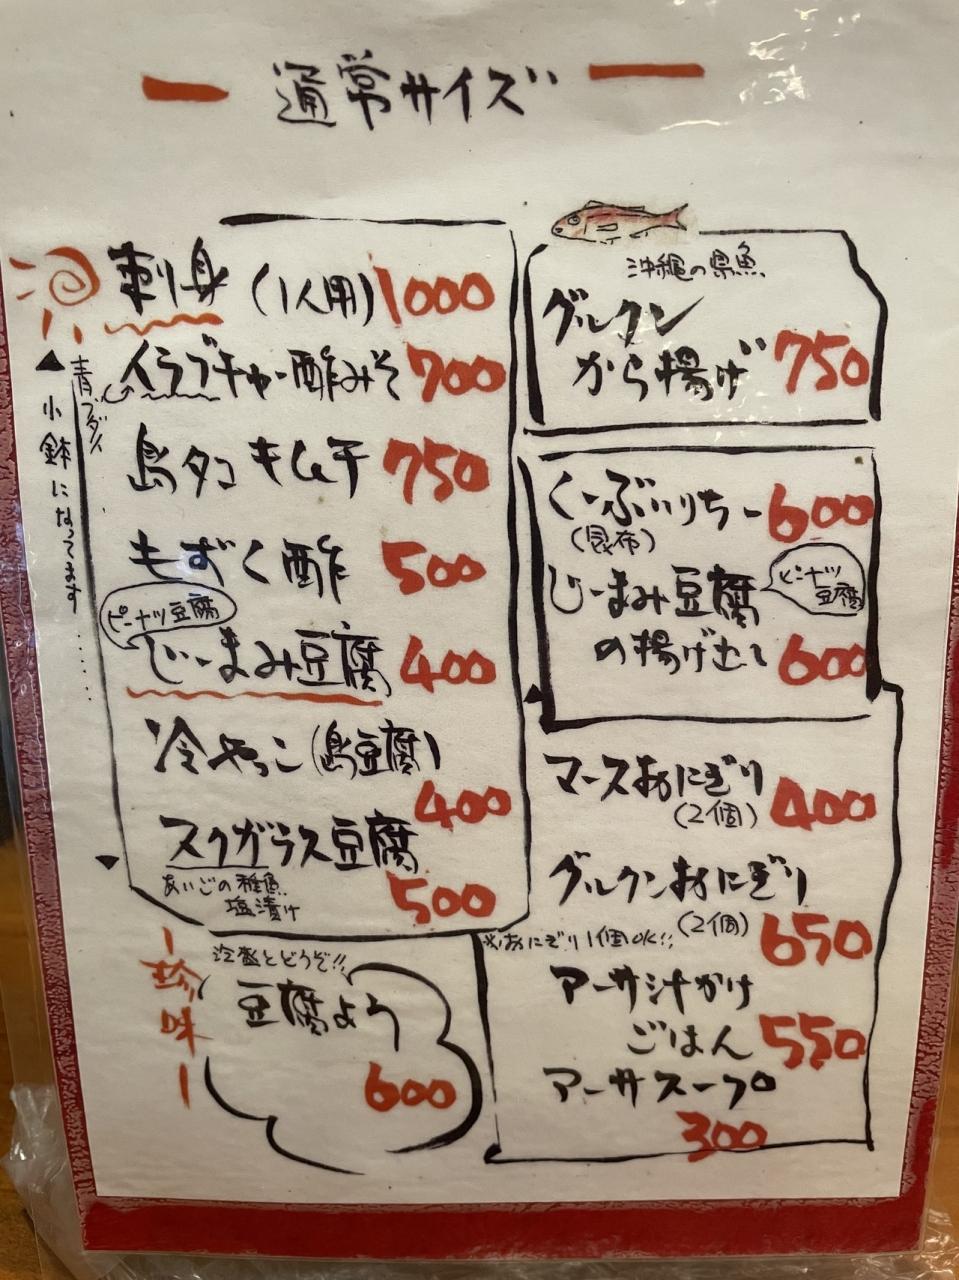 通常サイズ
刺身(1人用)1000
イラブチャー酢みそ 700
青ブダイ
小鉢になってます......
島タコキムチ 750
もずく酢 500
ピーナツ豆腐
じーまみ豆腐 400
冷やっこ(島豆腐)
400
スクガラス豆腐
あいごの稚魚
塩漬け
500
珍味
冷盛とどうぞ!!
豆腐よう
600
沖縄の県魚
グルクン
から揚げ 750
くーぶいりちー 600
(昆布)
じーまみ豆腐
ピーナツ
豆腐
の揚げ出し 600
マースおにぎり
(2個) 400
グルクンおにぎり
(2個) 650
※おにぎり1個OK!!
アーサ汁かけ
ごはん 550
アーサスープ
300